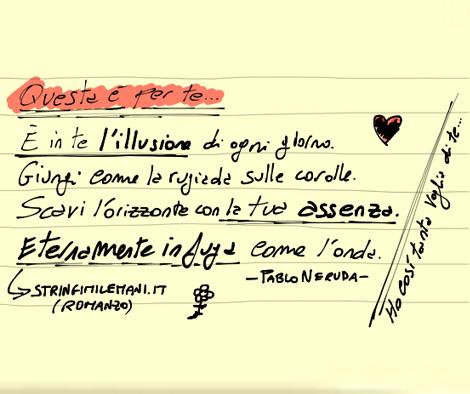 Questa è per te...
È in te l'illusione di ogni giorno.
Giungi come la rugiada sulle corolle.
Scavi l'orizzonte con la tua assenza.
Eternamente in fuga come l'onda.
-PABLO NERUDA-
STRINGIMILEMANI.IT
(ROMANZO)
Ho così tanta voglia di te...